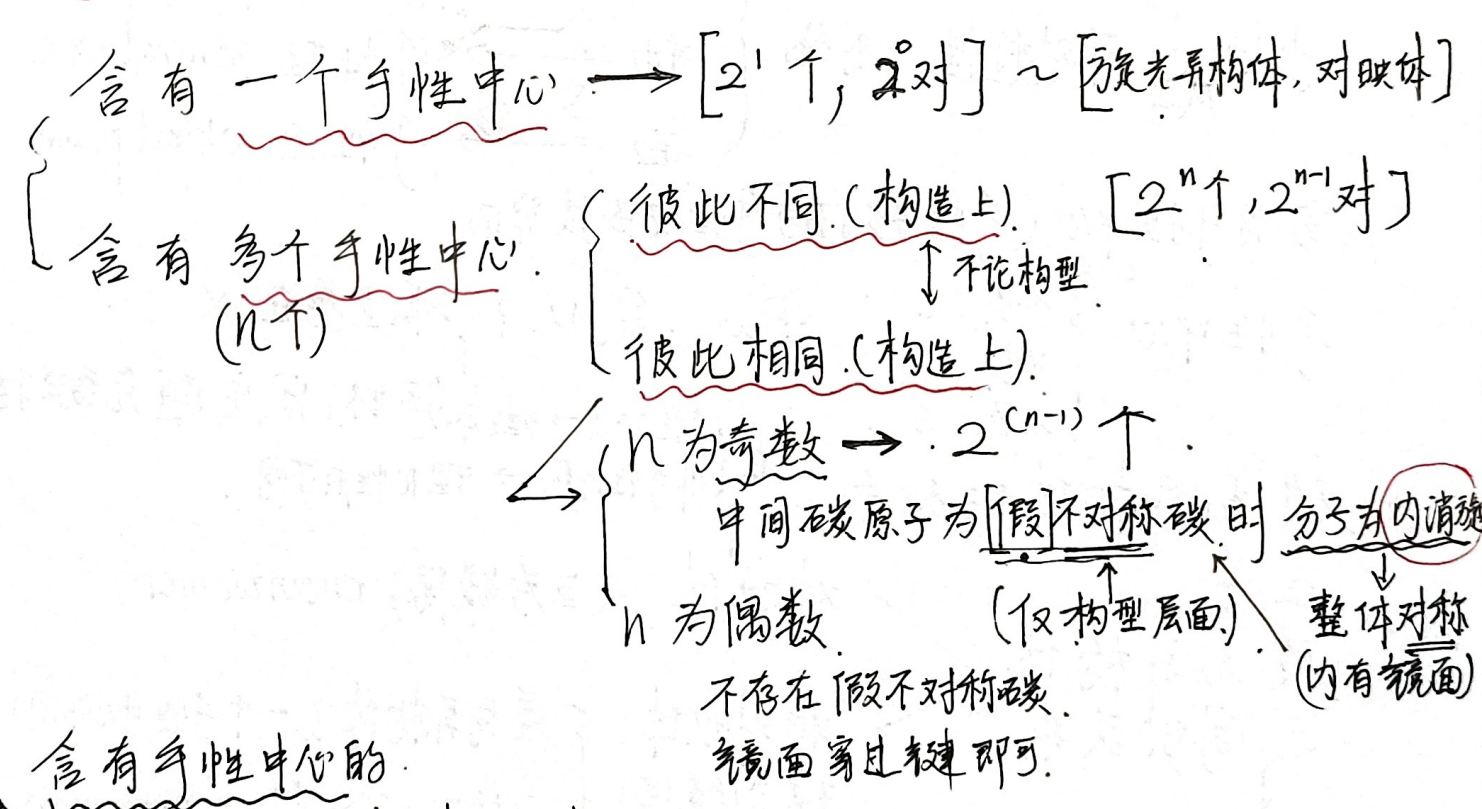 含有一个手性中心 → [2¹个, 2⁰对] ~ [旋光异构体, 对映体]
含有多个手性中心.
(n个)
彼此不同.(构造上). [2ⁿ个, 2ⁿ⁻¹对]
↕ 不论构型.
彼此相同.(构造上).
n为奇数 → 2⁽ⁿ⁻¹⁾个.
中间碳原子为[假]不对称碳时 分子为内消旋
(仅构型层面) 整体对称
(内有镜面)
n为偶数.
不存在假不对称碳.
镜面穿过键即可.
含有手性中心的.